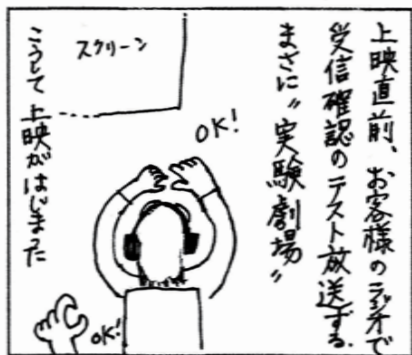 上映直前、お客様のラジオで
受信確認のテスト放送する。
まさに〝実験劇場〟
OK!
スクリーン
OK!
こうして上映がはじまった